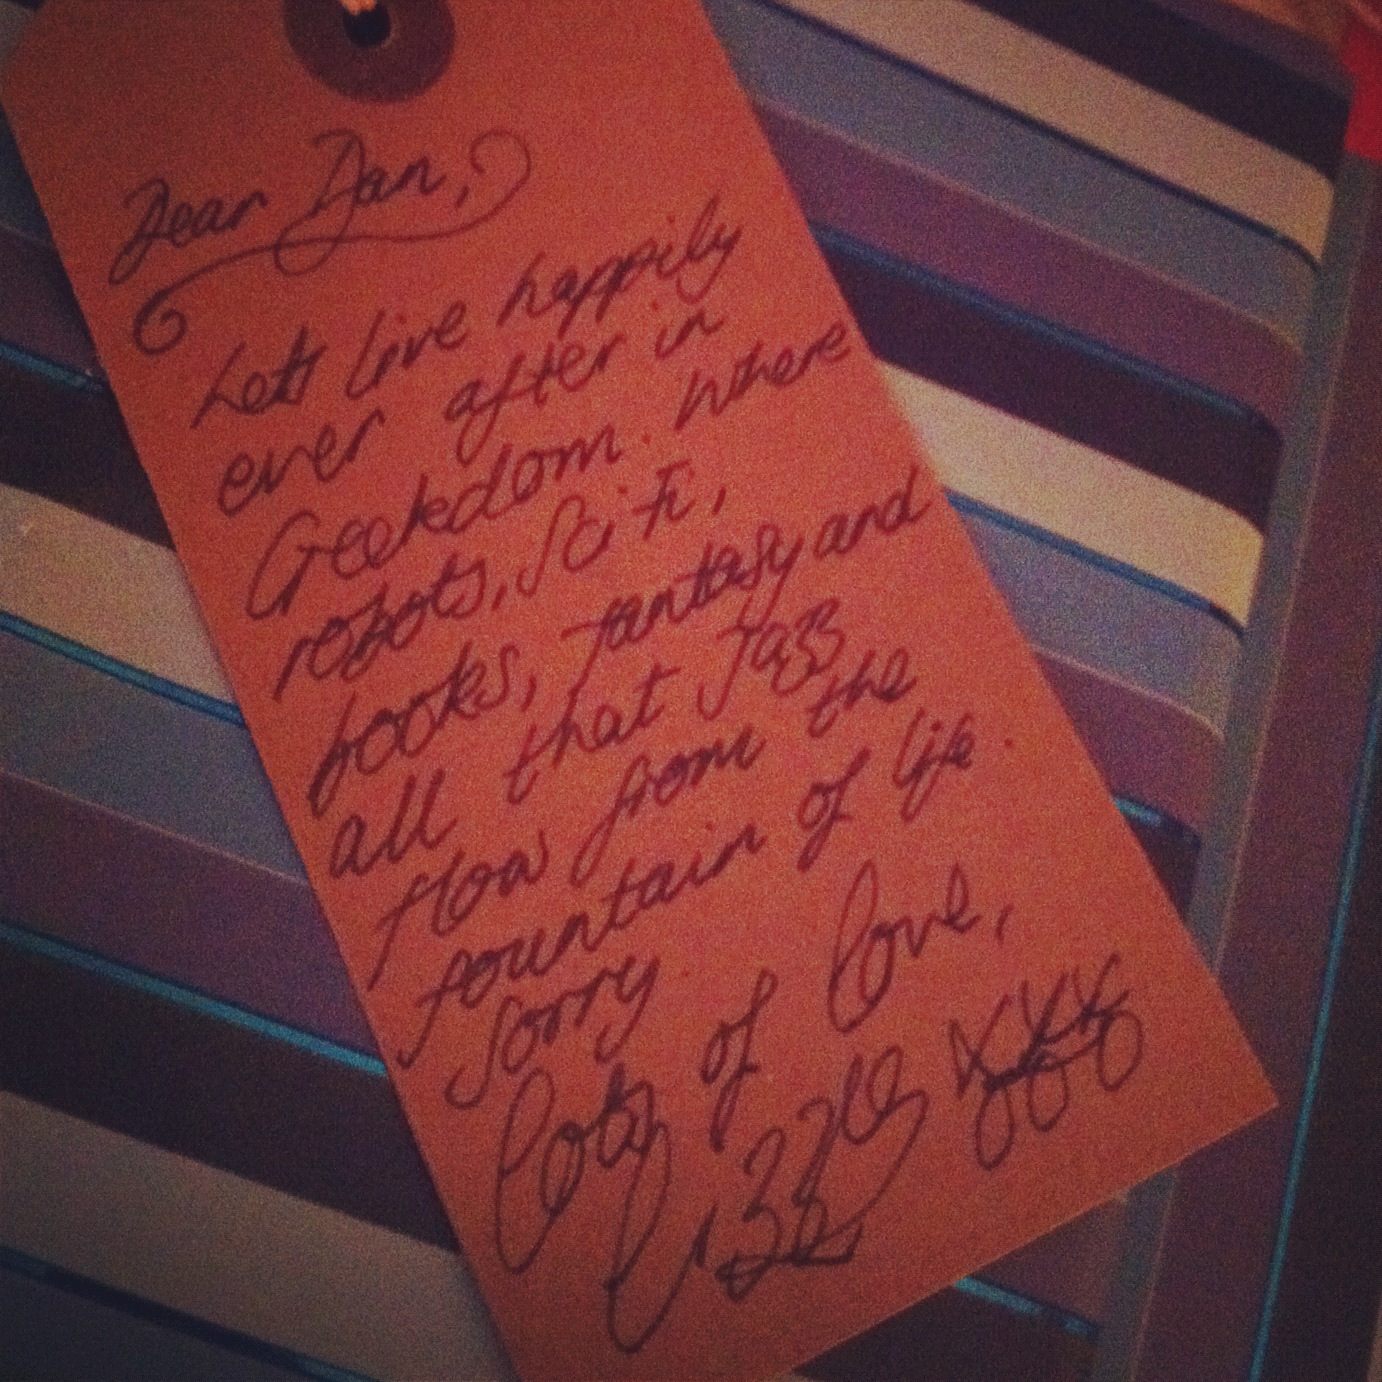 Dear Dan,
Let's live happily
ever after in
Geekdom. Where
robots, Sci Fi,
books, fantasy and
all that jazz
flow from the
fountain of life.
Sorry.
Lots of love,
Lizzle xxxx